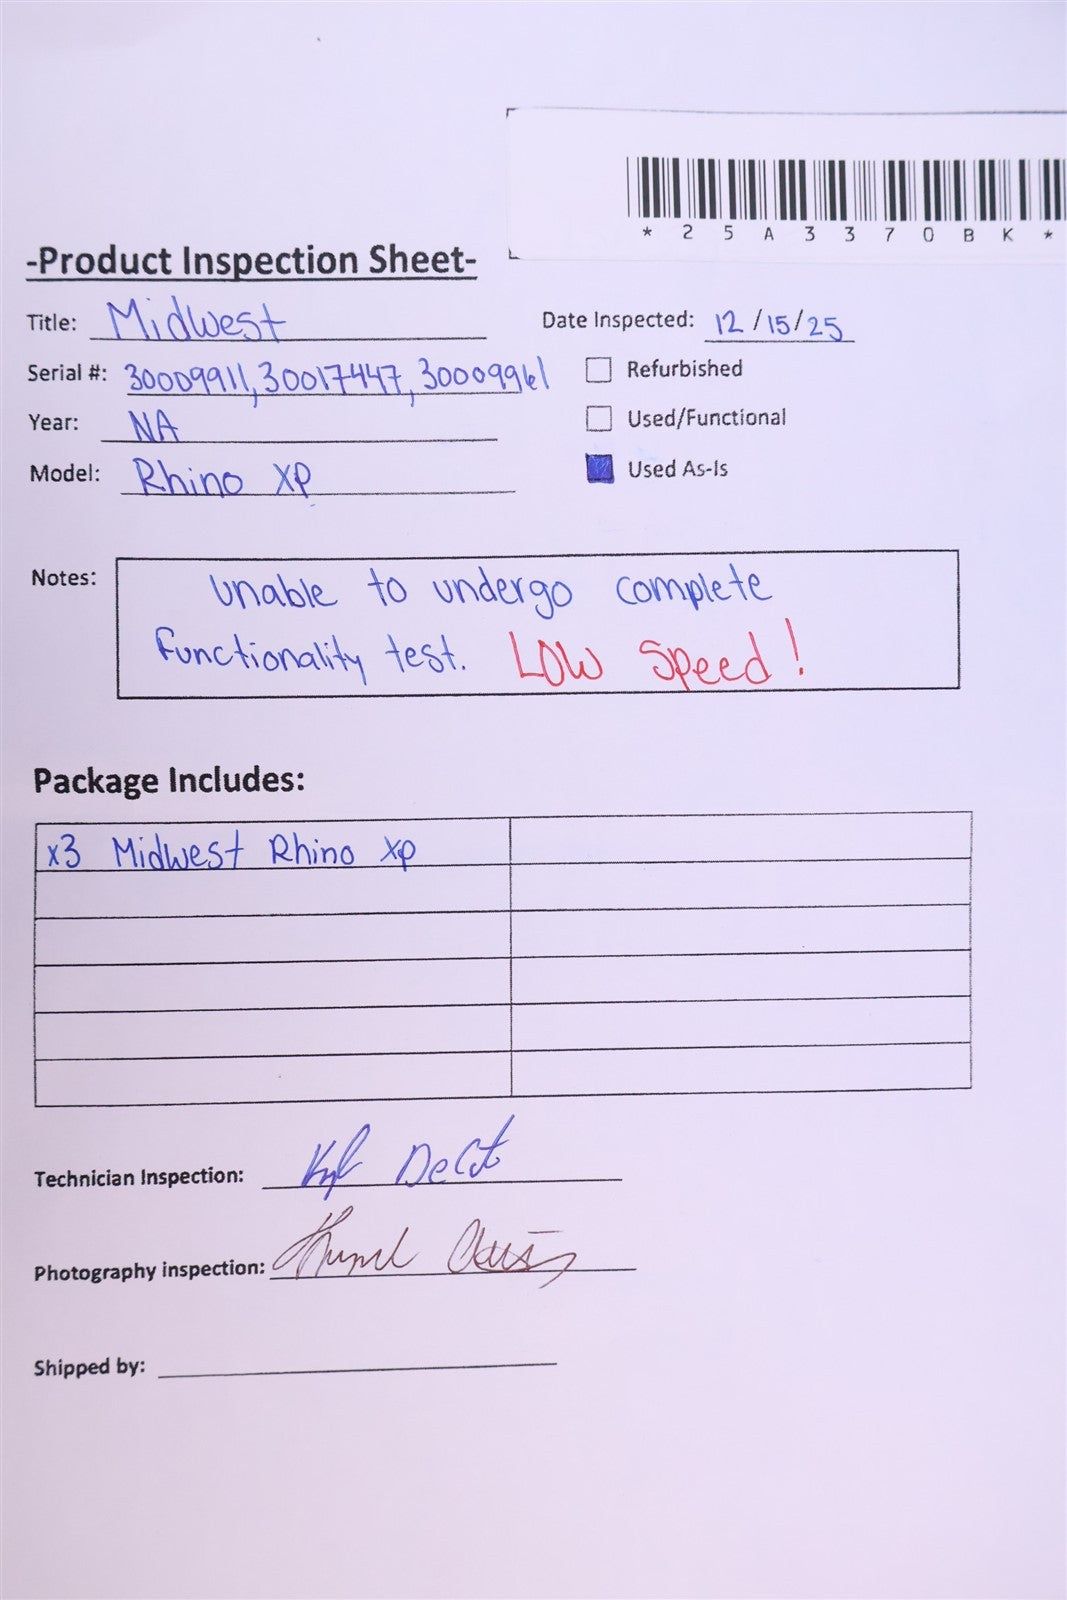 * 2 5 A 3 3 7 0 B K *
-Product Inspection Sheet-
Title: Midwest
Date Inspected: 12/15/25
Serial #: 30009911, 30017447, 30009961
Refurbished
Year: NA
Used/Functional
Model: Rhino XP
Used As-Is
Notes: Unable to undergo complete
functionality test. LOW Speed!
Package Includes:
x3 Midwest Rhino XP
Technician Inspection:
Photography inspection:
Shipped by: